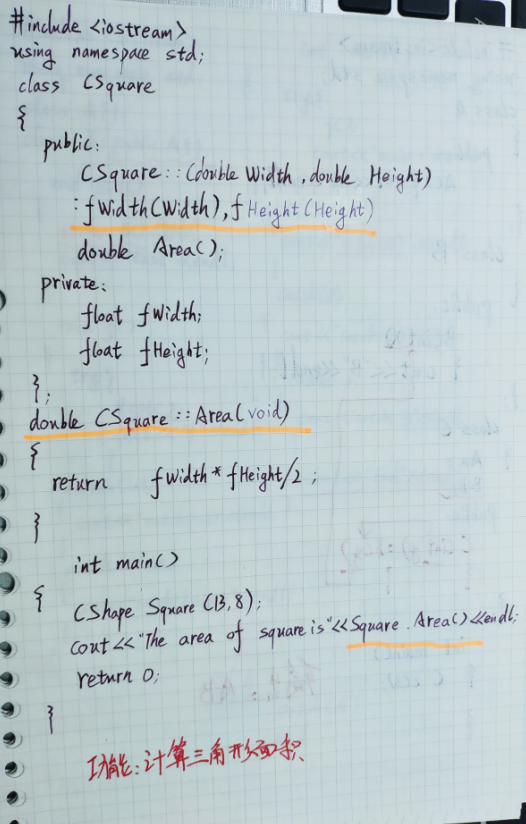 #include <iostream>
using namespace std;
class CSquare
{
public:
CSquare::(double Width,double Height)
:fWidth(Width),fHeight(Height)
double Area();
private:
float fWidth;
float fHeight;
};
double CSquare::Area(void)
{
return fWidth*fHeight/2;
}
int main()
{
CShape Square(13,8);
cout<<"The area of square is"<<Square.Area()<<endl;
return 0;
}
功能:计算三角形面积